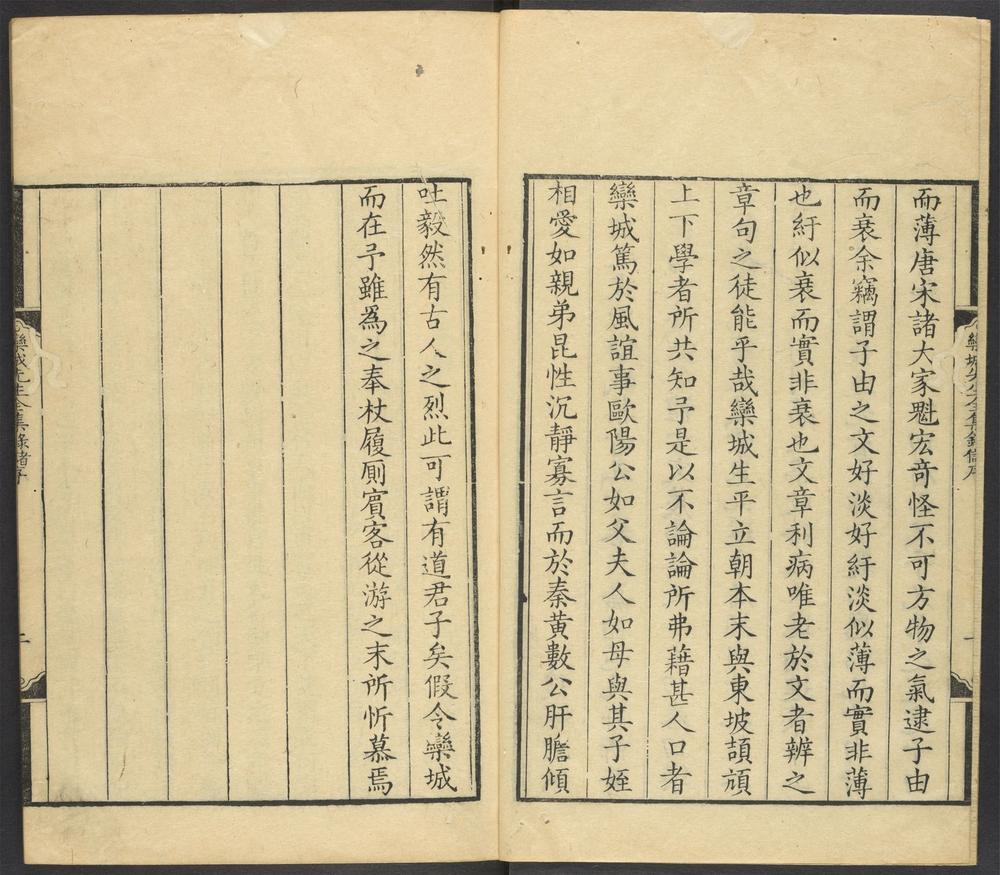 而薄唐宋諸大家魁宏奇怪不可方物之氣逮子由
而衰余竊謂子由之文好淡好紆淡似薄而實非薄
也紆似衰而實非衰也文章利病唯老於文者辨之
章句之徒能乎哉欒城生平立朝本末與東坡頡頏
上下學者所共知予是以不論論所弗藉甚人口者
欒城篤於風誼事歐陽公如父夫人如母與其子姪
相愛如親弟昆性沉靜寡言而於秦黃數公肝膽傾
吐毅然有古人之烈此可謂有道君子矣假令欒城
而在予雖爲之奉杖履厠賓客從游之末所忻慕焉
欒城先生全集錄